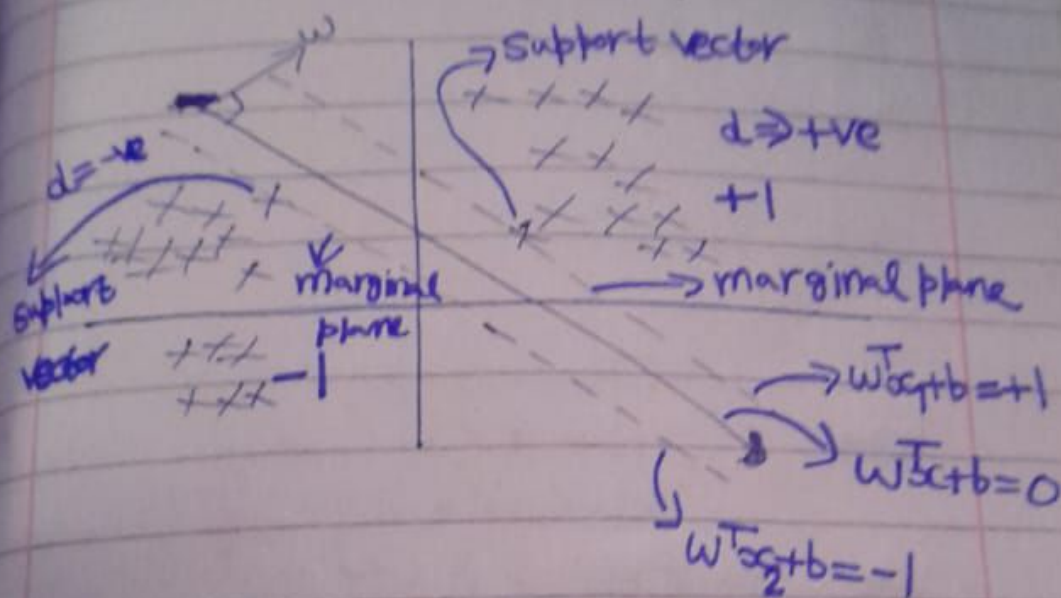 w
support vector
d ⇒ +ve
d = -ve
+1
support
vector
marginal
plane
marginal plane
-1
wᵀx₁+b=+1
wᵀx+b=0
wᵀx₂+b=-1